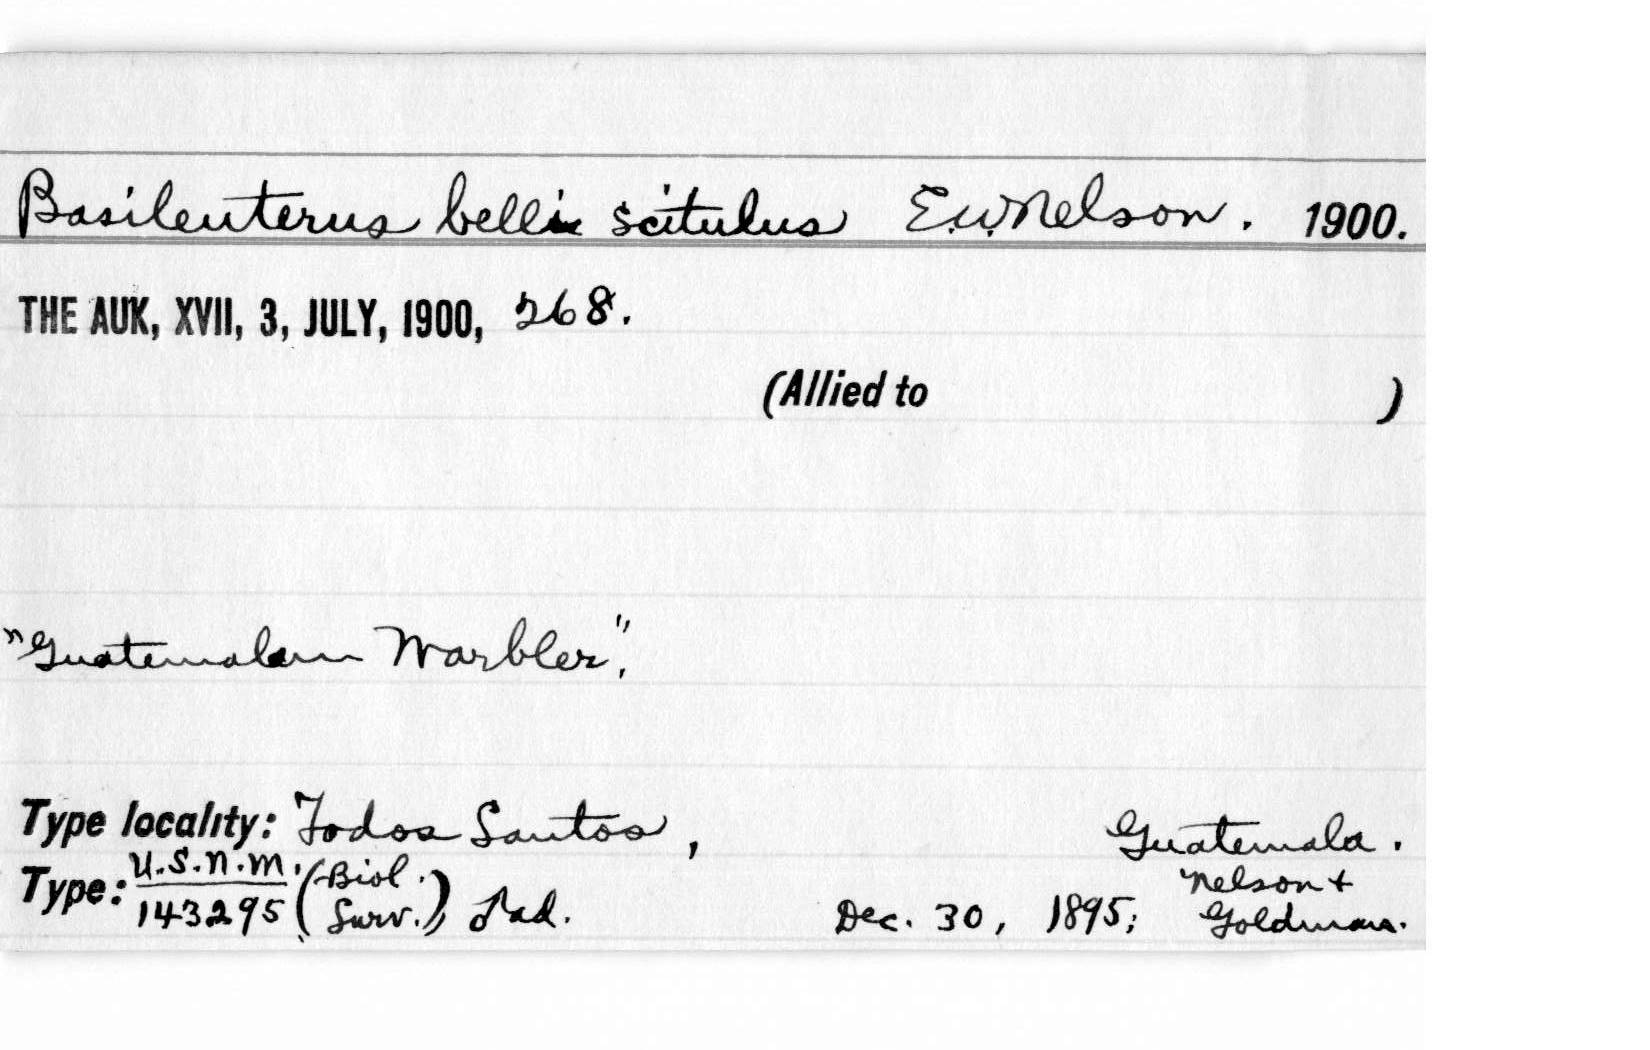 Basileuterus belli scitulus E.W. Nelson. 1900.
THE AUK, XVII, 3, JULY, 1900, 268.
(Allied to )
"Guatemalan Warbler".
Type locality: Todos Santos, Guatemala.
Type: U.S.N.M. 143295 (Biol. Surv.) ♂ ad. Dec. 30, 1895; Nelson + Goldman.